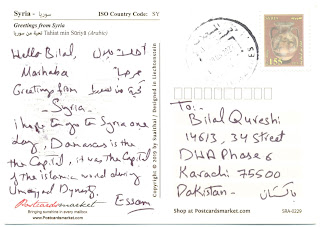 Syria - سوريا
ISO Country Code: SY
Greetings from Syria
تحية من سوريا Tahiat min Sūriyā (Arabic)
Hello Bilal,
Marhaba مرحبا
Greetings from
- Syria -
i hope to go to Syria one
day, Damascus is the
the Capital, it was the Capital
of the islamic world during
Umayyad Dynasty.
Essam
Postcardsmarket
Bringing sunshine in every mailbox
www.postcardsmarket.com
155
To:-
Bilal Qureshi
146/3, 34 Street
DHA Phase 6
Karachi 75500
Pakistan - پاکستان
Shop at Postcardsmarket.com
SRA-0229